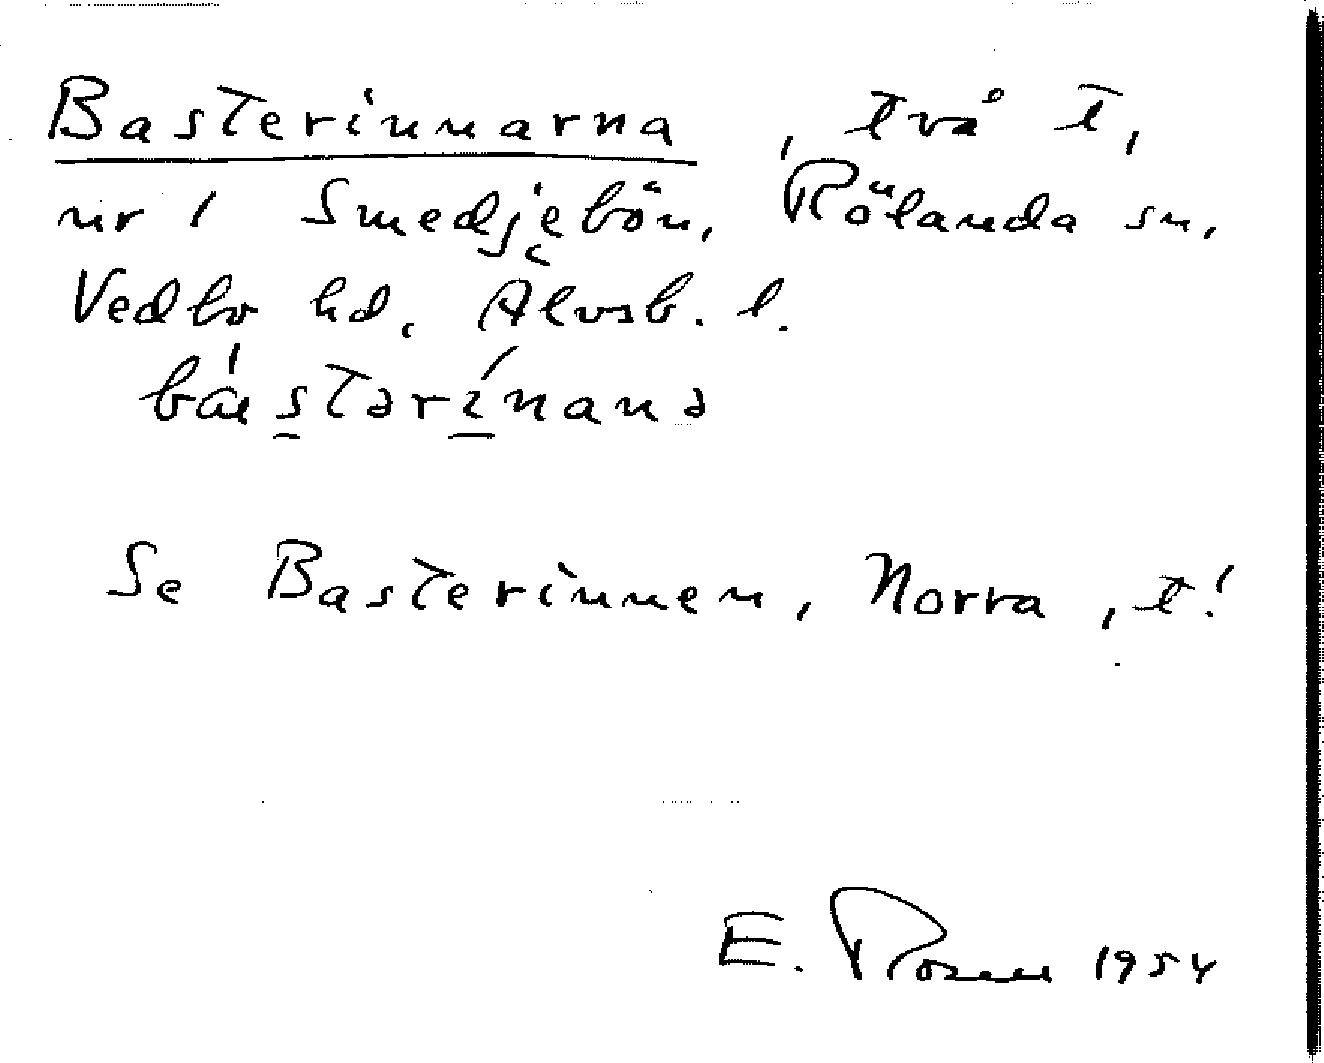 Basterinnarna, två t,
nr 1 Smedjebön, Rölanda sn,
Vedbo hd, Älvsb. l.
bástərínanə
Se Basterinnen, Norra, t!
E. Rosen 1954